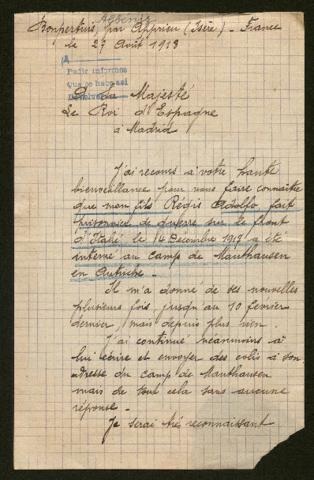 Albéniz
Bonpertuis, par Apprieu (Isère) - France
le 27 Août 1918
Pedir informes
que se haga así
A Sa Majesté
Le Roi d'Espagne
à Madrid
J'ai recours à votre haute
bienveillance pour nous faire connaître
que mon fils Régis Adolfo fait
prisonnier de guerre sur le front
d'Italie le 14 Décembre 1917 a été
interné au camp de Mauthausen
en Autriche -
Il m'a donné de ses nouvelles
plusieurs fois jusqu'au 10 février
dernier, mais depuis plus rien -
J'ai continué néanmoins à
lui écrire et envoyer des colis à son
adresse du camp de Mauthausen
mais de tout cela sans aucune
réponse -
Je serai très reconnaissant